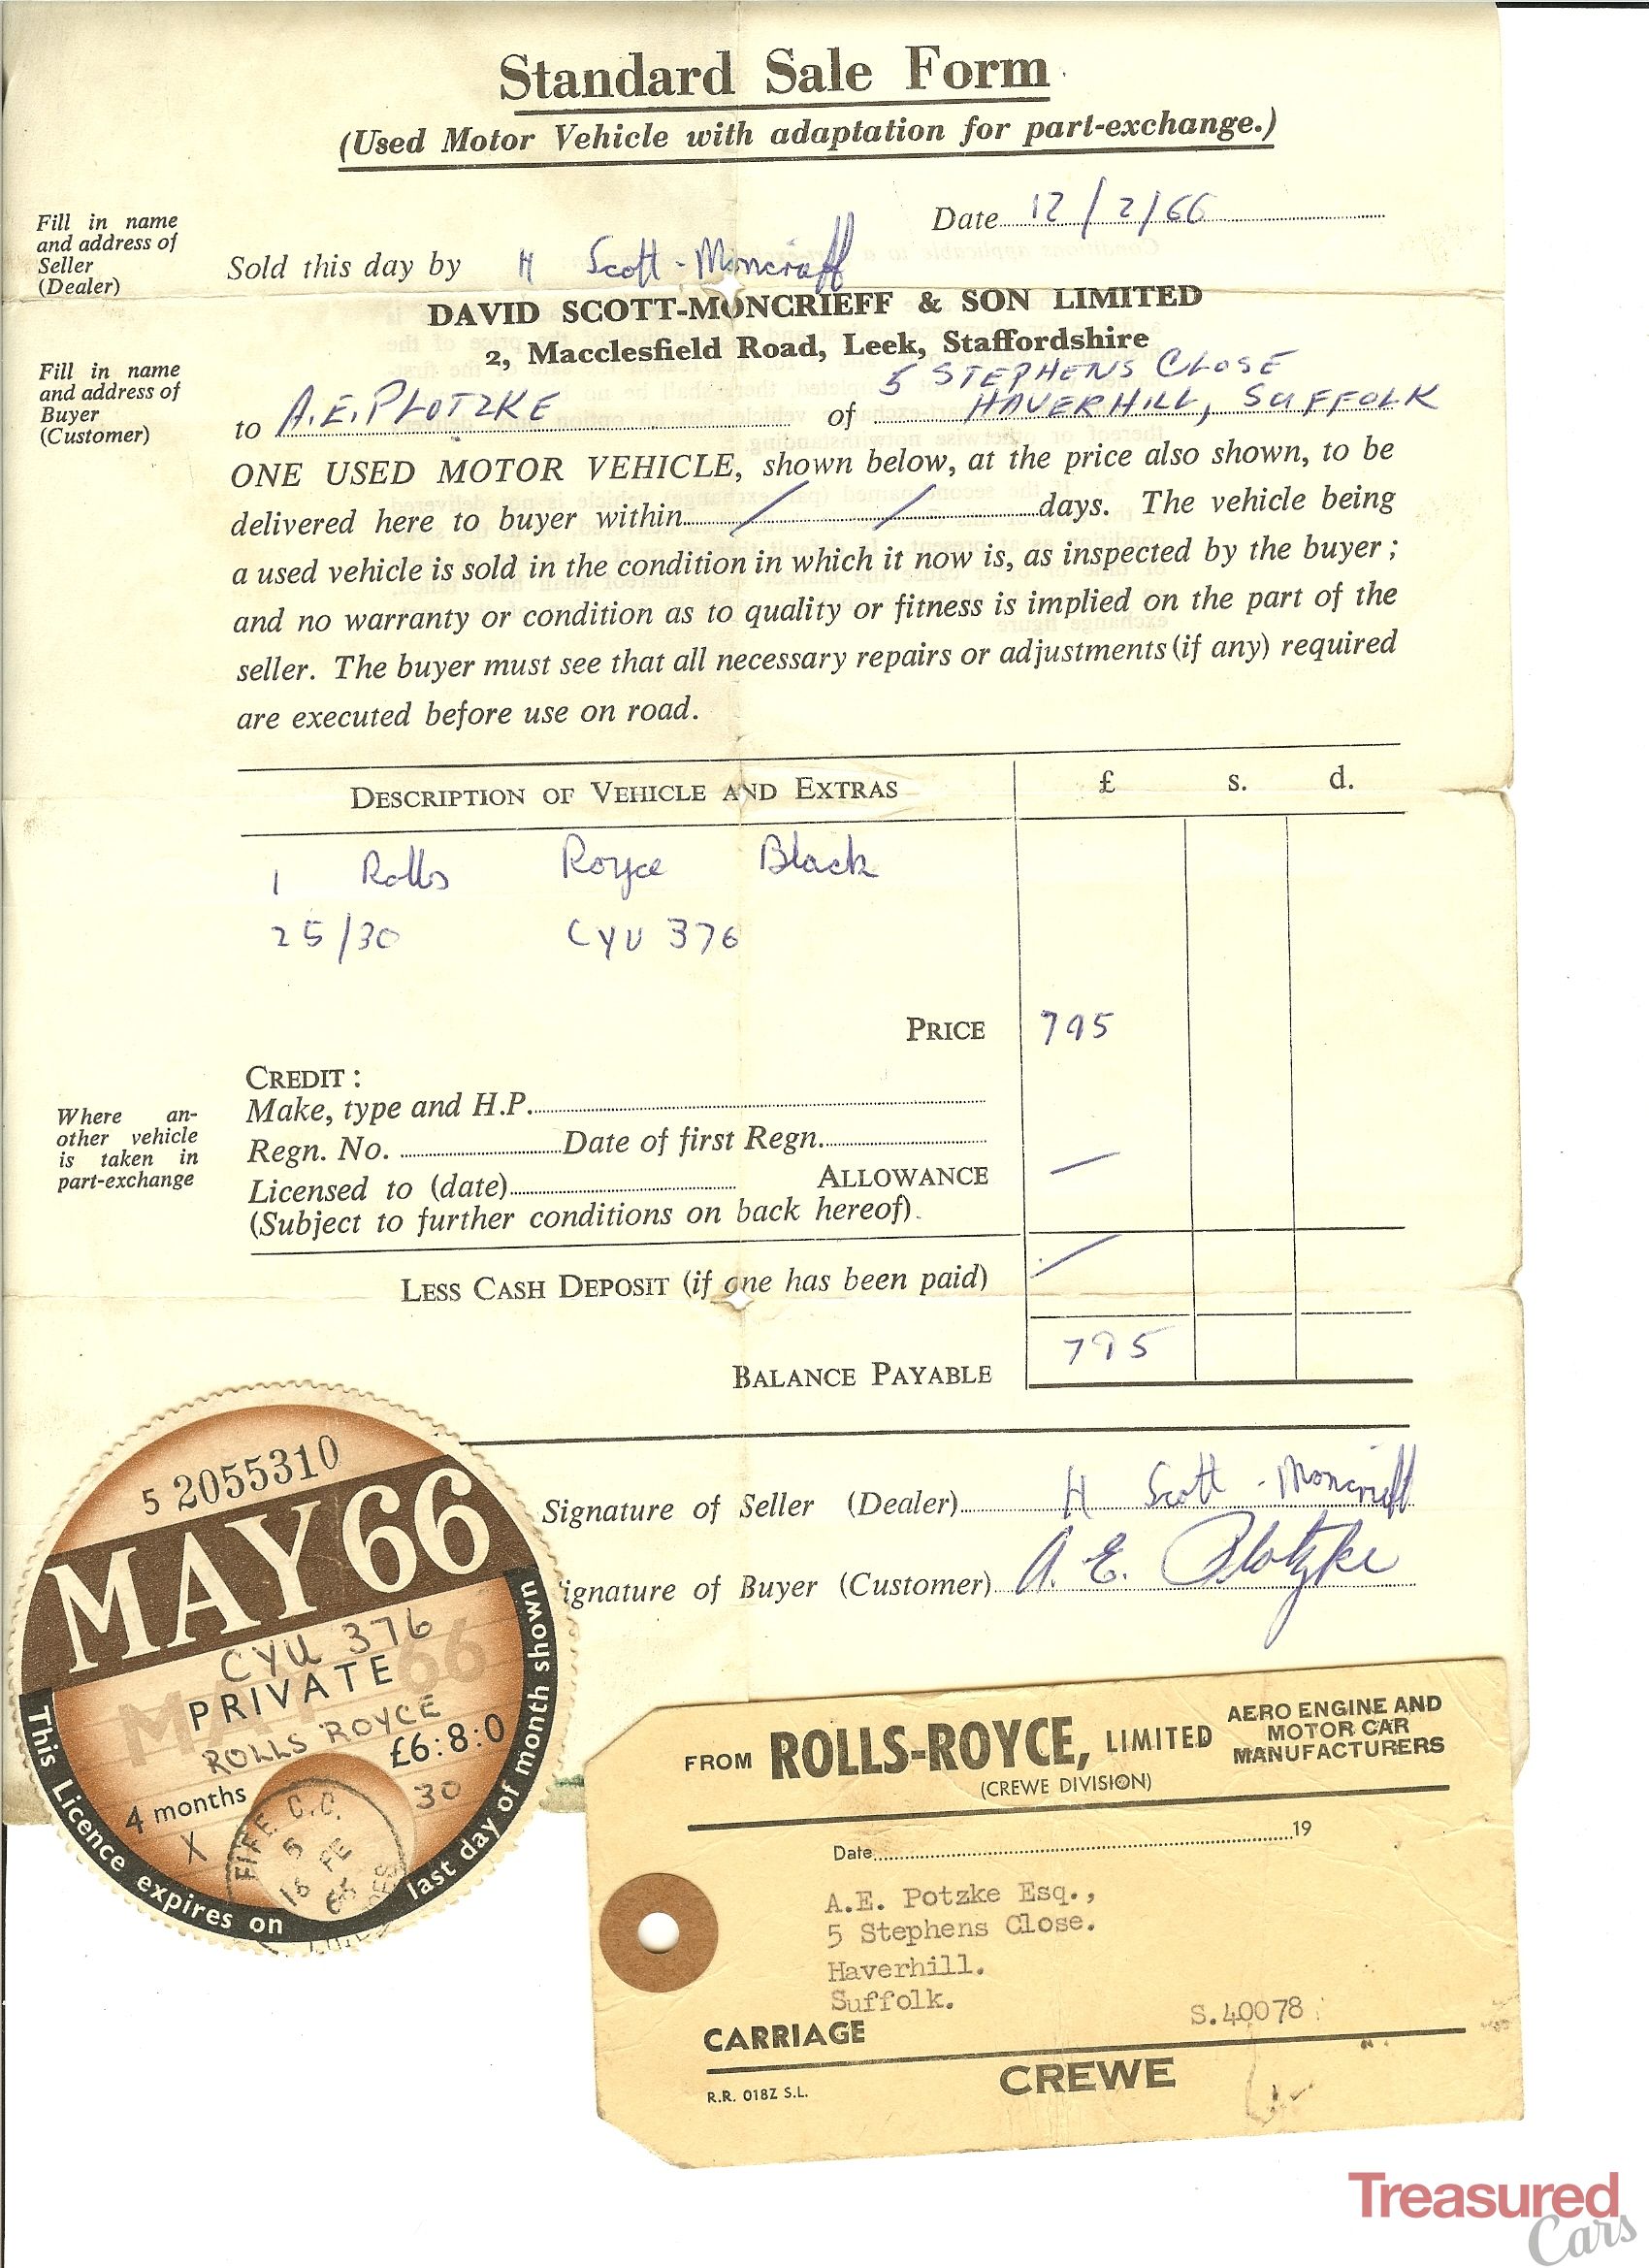 Standard Sale Form
(Used Motor Vehicle with adaptation for part-exchange.)
Fill in name
and address of
Seller
(Dealer)
Date 12/2/66
Sold this day by H Scott-Moncrieff
DAVID SCOTT-MONCRIEFF & SON LIMITED
2, Macclesfield Road, Leek, Staffordshire
Fill in name
and address of
Buyer
(Customer)
5 STEPHENS CLOSE
to A.E. PLOTZKE of HAVERHILL, SUFFOLK
ONE USED MOTOR VEHICLE, shown below, at the price also shown, to be
delivered here to buyer within / / days. The vehicle being
a used vehicle is sold in the condition in which it now is, as inspected by the buyer ;
and no warranty or condition as to quality or fitness is implied on the part of the
seller. The buyer must see that all necessary repairs or adjustments (if any) required
are executed before use on road.
DESCRIPTION OF VEHICLE AND EXTRAS £ s. d.
1 Rolls Royce Black
25/30 CYU 376
PRICE 795
CREDIT :
Make, type and H.P.
Regn. No. Date of first Regn.
Licensed to (date) ALLOWANCE
(Subject to further conditions on back hereof).
Where an-
other vehicle
is taken in
part-exchange
LESS CASH DEPOSIT (if one has been paid)
BALANCE PAYABLE 795
Signature of Seller (Dealer) H Scott-Moncrieff
ignature of Buyer (Customer) A. E. Plotzke
5 2055310
MAY 66
CYU 376
PRIVATE
MAY 66
ROLLS ROYCE
£6:8:0
4 months 30
X
FIFE C.C.
This Licence expires on last day of month shown
FROM ROLLS-ROYCE, LIMITED
AERO ENGINE AND
MOTOR CAR
MANUFACTURERS
(CREWE DIVISION)
Date 19
A.E. Potzke Esq.,
5 Stephens Close.
Haverhill.
Suffolk.
S.40078
CARRIAGE
CREWE
R.R. 018Z S.L.
Treasured
Cars